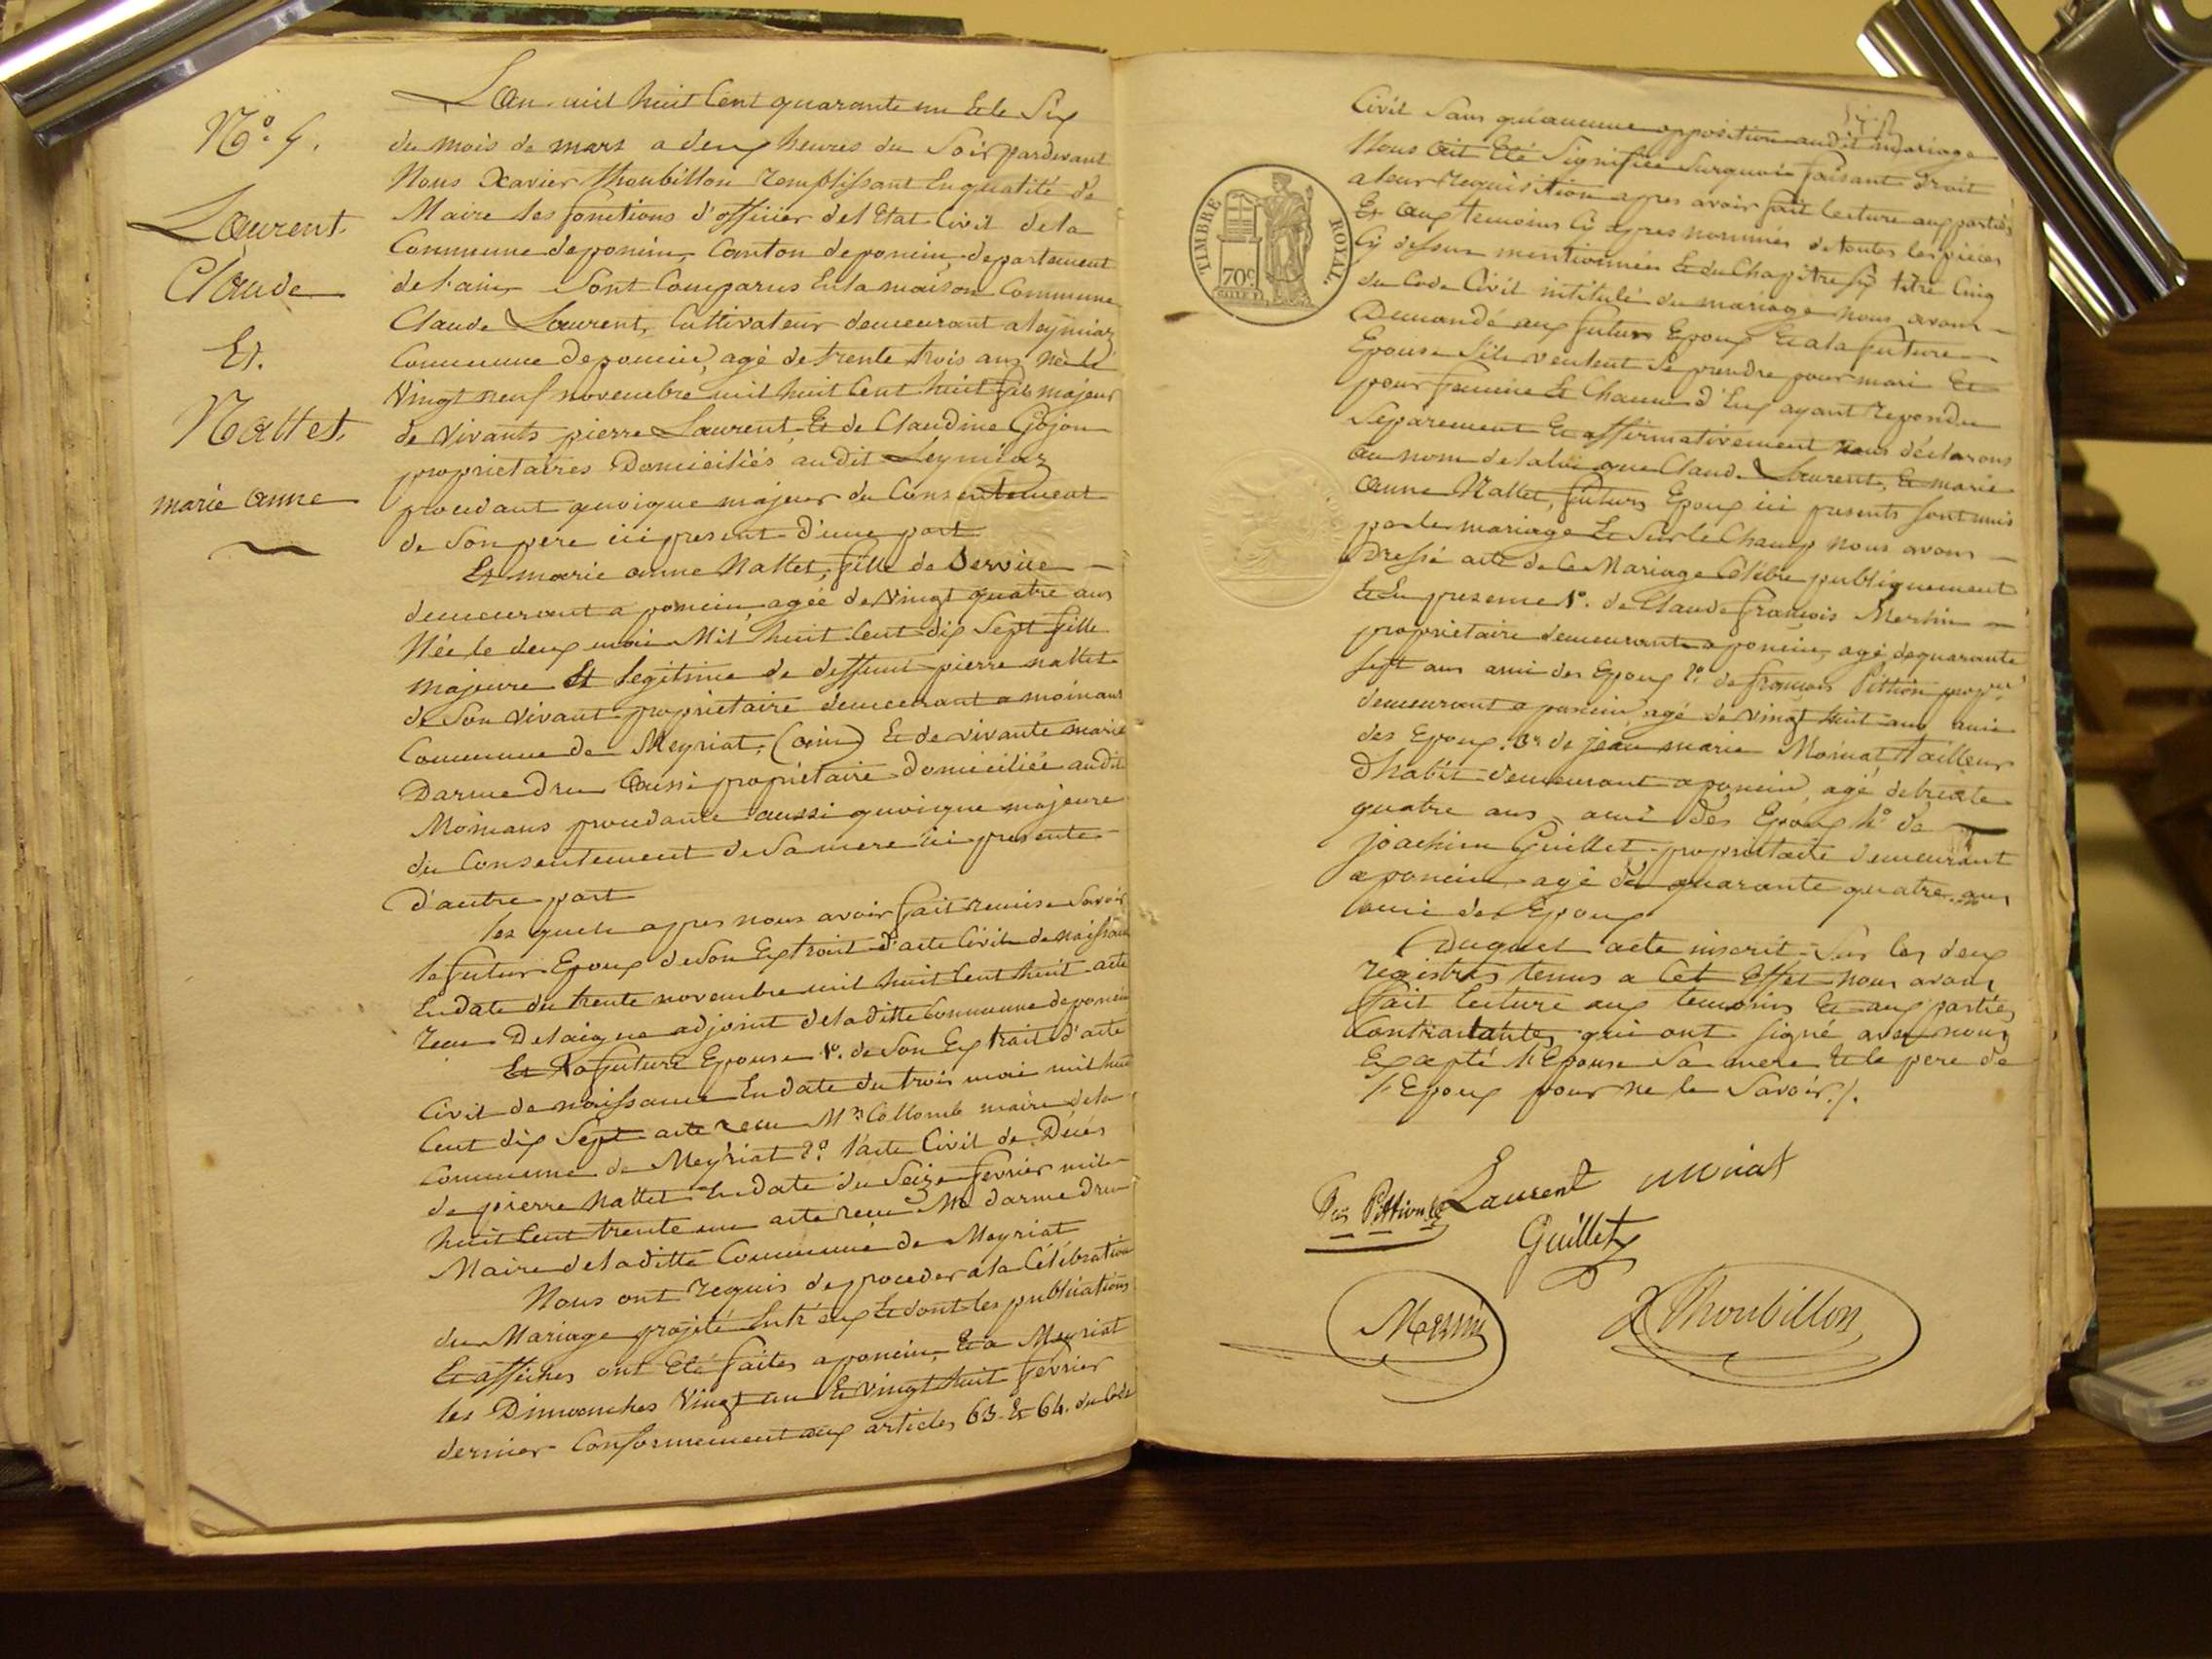 L'an mil huit Cent quarante un Et le Six
du mois de mars a deux heures du Soir pardevant
Nous Xavier Thoubillon remplissant En qualité de
Maire les fonctions d'officier de l'Etat Civil de la
Commune de poncin, Canton de poncin departement
de l'ain, Sont Comparus En la maison Commune
Claude Laurent, Cultivateur demeurant a leymiaz
Commune de poncin, agé de trente trois ans né le
Vingt neuf novembre mil huit Cent huit fils majeur
de Vivants pierre Laurent, Et de Claudine Gojon
proprietaires Domiciliés audit Leymiaz
procedant quoique majeur du Consentement
de Son pere ici present d'une part
Et marie anne Nallet, fille de Service
demeurant a poncin, agée de Vingt quatre ans
Née le deux mai Mil huit Cent dix Sept fille
majeure Et legitime de deffunt pierre nallet
de Son Vivant proprietaire demeurant a moinans
Commune de Meyriat, (ain) Et de vivante marie
Darmedru aussi proprietaire domiciliée audit
Moinans procedante aussi quoique majeure
du Consentement de Sa mere ici presente
d'autre part
les quels appres nous avoir fait remise Savoir
le futur Epoux de Son Extrait d'acte Civil de naissance
En date du trente novembre mil huit Cent huit acte
recu Delaigue adjoint de laditte Commune de poncin
Et la future Epouse 1º. de Son Extrait d'acte
Civil de naissance En date du trois mai mil huit
Cent dix Sept acte recu Mr Collomb maire de la
Commune de Meyriat 2º. l'acte Civil de Décés
de pierre Nallet En date du Seize fevrier mil
huit Cent trente un acte recu Mr darmedru
Maire de laditte Commune de Meyriat
Nous ont requis de proceder a la Célébration
du Mariage projeté Entr'eux Et dont les publications
Et affiches ont Eté faites a poncin, Et a Meyriat
les Dimanches Vingt un Et vingt huit fevrier
dernier Conformement aux articles 63 Et 64. du Code
Nº. 5.
Laurent
Claude
Et.
Nallet.
marie anne
Civil Sans qu'aucune opposition audit mariage
Nous ait Eté Signifiée Surquoi faisant droit
a leur requisition appres avoir fait lecture aux parties
Et aux temoins Cy apres nommés de toutes les pièces
Cy dessus mentionnées Et du Chapitre Six titre Cinq
du Code Civil intitulé du mariage nous avons
Demandé aux futurs Epoux Et a la future
Epouse S'ils veulent Se prendre pour mari Et
pour femme Et Chacun d'Eux ayant repondu
Séparement Et affirmativement nous déclarons
au nom de la loi que Claude Laurent, Et marie
anne Nallet, futurs Epoux ici presents Sont unis
par le mariage Et Sur le Champ nous avons
Dressé acte de Ce Mariage Célébré publiquement
Et En presence 1º. de Claude françois Merlin
proprietaire demeurant a poncin, agé de quarante
Sept ans ami des Epoux 2º. de françois Pittion propre.
demeurant a poncin, agé de vingt huit ans ami
des Epoux. 3º. de jean marie Moinat tailleur
d'habit demeurant a poncin, agé de trente
quatre ans, ami des Epoux 4º. de
joachim Guillet proprietaire demeurant
a poncin agé de quarante quatre ans
ami des Epoux
Duquel acte inscrit Sur les deux
registres tenus a Cet Effet nous avons
fait lecture aux temoins Et aux parties
Contractantes qui ont Signé avec nous
Excepté l'Epouse Sa mere Et le pere de
l'Epoux pour ne le Savoir./.
TIMBRE ROYAL.
70c
Fçs Pittion
Laurent
Guillet
Thoubillon